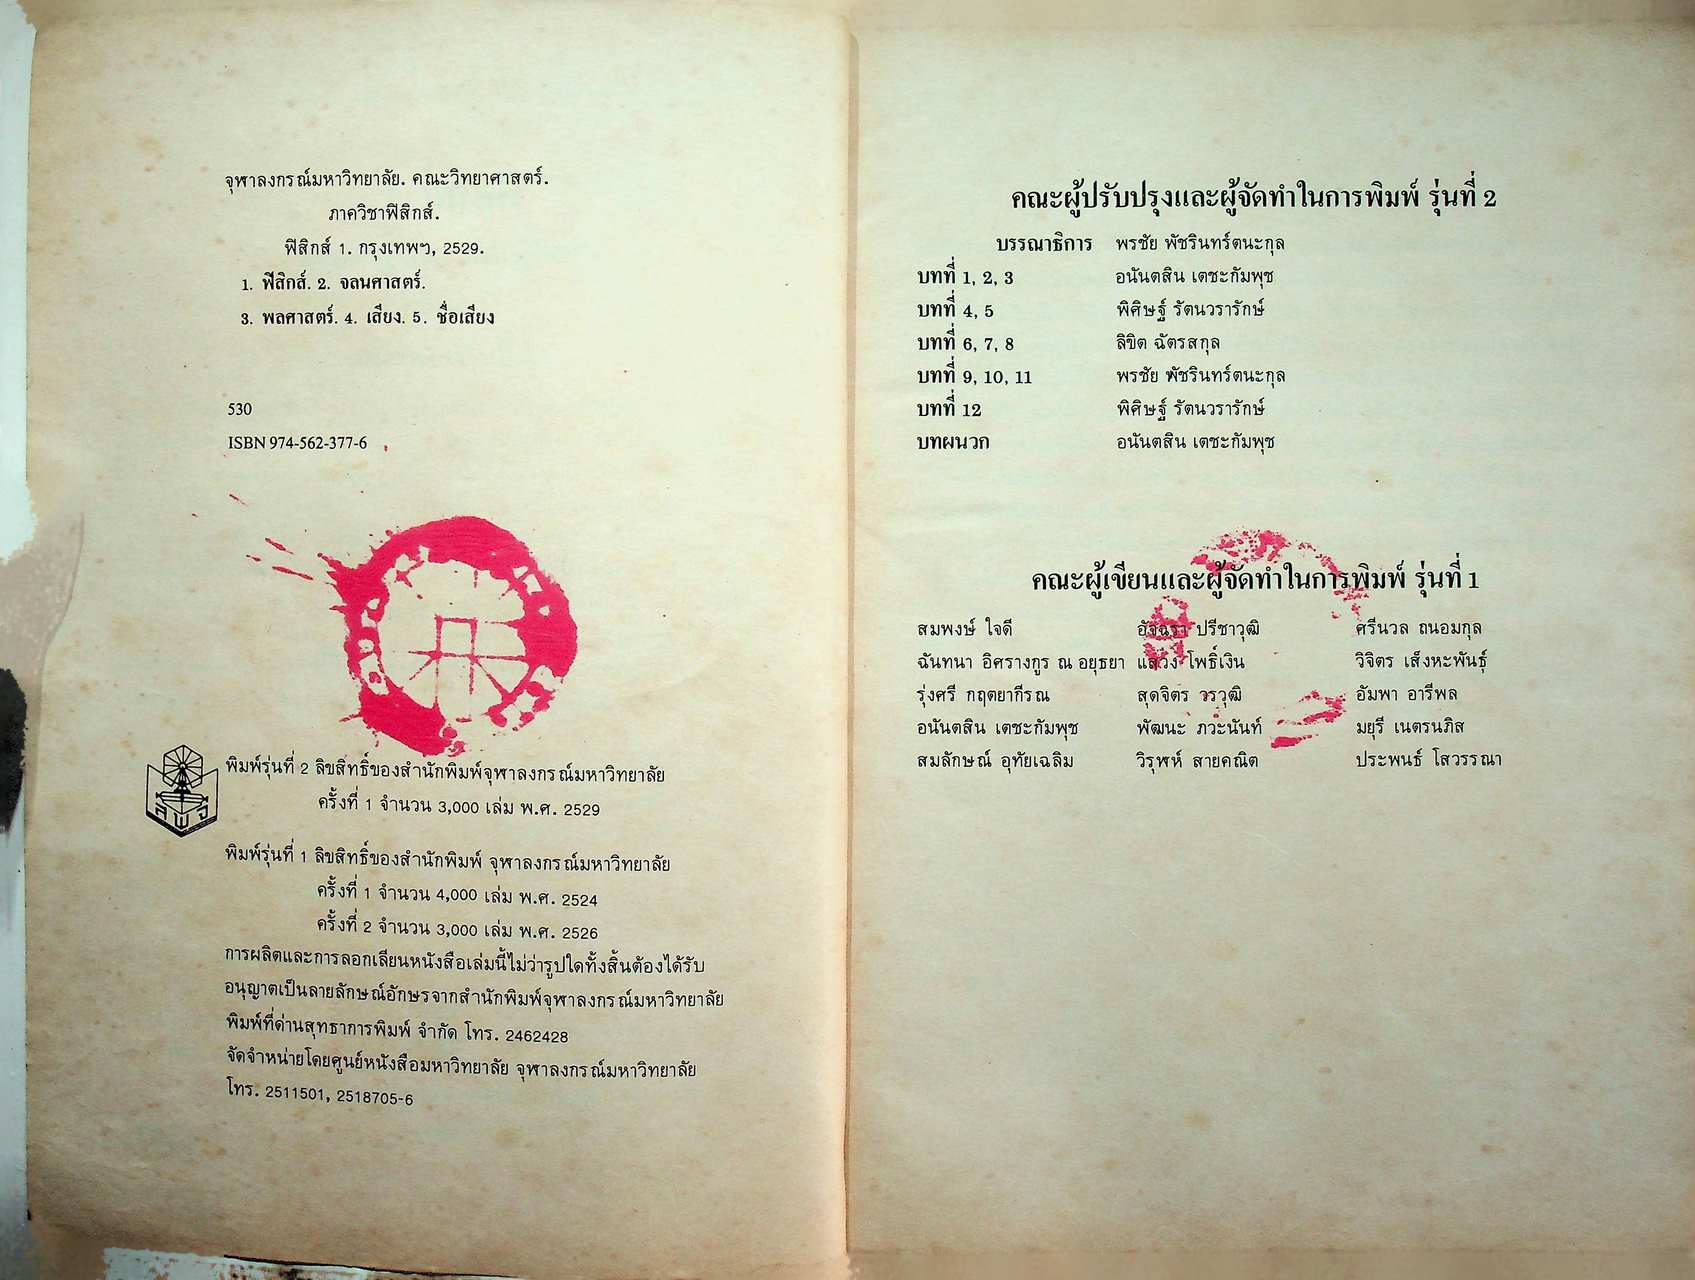 จุฬาลงกรณ์มหาวิทยาลัย. คณะวิทยาศาสตร์.
ภาควิชาฟิสิกส์.
ฟิสิกส์ 1. กรุงเทพฯ, 2529.
1. ฟิสิกส์. 2. จลนศาสตร์.
3. พลศาสตร์. 4. เสียง. 5. ชื่อเสียง
530
ISBN 974-562-377-6
สพจ
พิมพ์รุ่นที่ 2 ลิขสิทธิ์ของสำนักพิมพ์จุฬาลงกรณ์มหาวิทยาลัย
ครั้งที่ 1 จำนวน 3,000 เล่ม พ.ศ. 2529
พิมพ์รุ่นที่ 1 ลิขสิทธิ์ของสำนักพิมพ์ จุฬาลงกรณ์มหาวิทยาลัย
ครั้งที่ 1 จำนวน 4,000 เล่ม พ.ศ. 2524
ครั้งที่ 2 จำนวน 3,000 เล่ม พ.ศ. 2526
การผลิตและการลอกเลียนหนังสือเล่มนี้ไม่ว่ารูปใดทั้งสิ้นต้องได้รับ
อนุญาตเป็นลายลักษณ์อักษรจากสำนักพิมพ์จุฬาลงกรณ์มหาวิทยาลัย
พิมพ์ที่ด่านสุทธาการพิมพ์ จำกัด โทร. 2462428
จัดจำหน่ายโดยศูนย์หนังสือมหาวิทยาลัย จุฬาลงกรณ์มหาวิทยาลัย
โทร. 2511501, 2518705-6
คณะผู้ปรับปรุงและผู้จัดทำในการพิมพ์ รุ่นที่ 2
บรรณาธิการ พรชัย พัชรินทร์ตนะกุล
บทที่ 1, 2, 3 อนันตสิน เตชะกัมพุช
บทที่ 4, 5 พิศิษฐ์ รัตนวรารักษ์
บทที่ 6, 7, 8 ลิขิต ฉัตรสกุล
บทที่ 9, 10, 11 พรชัย พัชรินทร์ตนะกุล
บทที่ 12 พิศิษฐ์ รัตนวรารักษ์
บทผนวก อนันตสิน เตชะกัมพุช
คณะผู้เขียนและผู้จัดทำในการพิมพ์ รุ่นที่ 1
สมพงษ์ ใจดี อัจฉรา ปรีชาวุฒิ ศรีนวล ถนอมกุล
ฉันทนา อิศรางกูร ณ อยุธยา แสวง โพธิ์เงิน วิจิตร เส็งหะพันธุ์
รุ่งศรี กฤตยากีรณ สุดจิตร วรวุฒิ อัมพา อารีพล
อนันตสิน เตชะกัมพุช พัฒนะ ภวะนันท์ มยุรี เนตรนภิส
สมลักษณ์ อุทัยเฉลิม วิรุฬห์ สายคณิต ประพนธ์ โสวรรณา